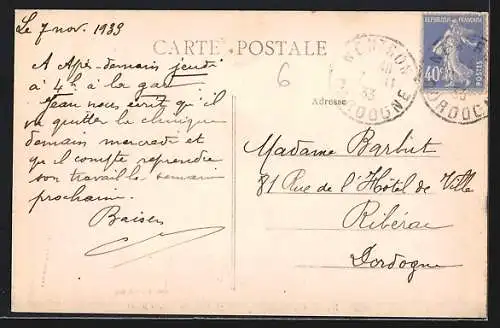 Le 7 nov. 1933
CARTE POSTALE
REPUBLIQUE FRANÇAISE
40c
POSTES
DORDOGNE
33
6
Adresse
A Après-demain jeudi
à 4h à la gare
Jean nous écrit qu'il
va quitter la clinique
demain mercredi et
qu'il compte reprendre
son travail la semaine
prochaine.
Baisers
Madame Barbut
81 Rue de l'Hôtel de Ville
Ribérac
Dordogne